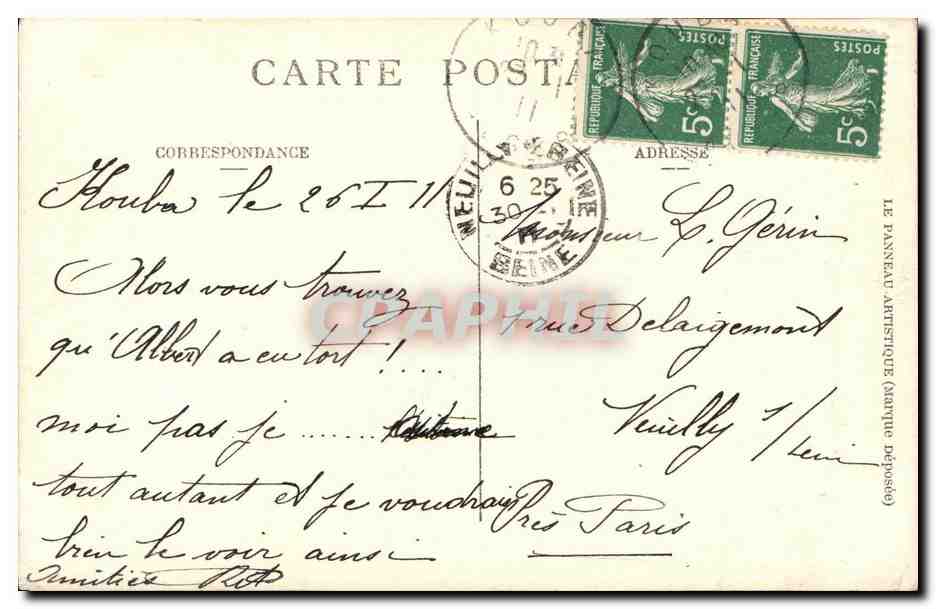 CARTE POSTA
CORRESPONDANCE
Kouba le 26 I 11
Alors vous trouvez
qu'Albert a eu tort !....
moi pas je ......
tout autant et je voudrais
bien le voir ainsi
Amitiés
ADRESSE
Monsieur L. Gérin
rue Delaigemont
Neuilly s/ Seine
Près Paris
LE PANNEAU ARTISTIQUE (Marque Déposée)
REPUBLIQUE FRANÇAISE
POSTES
5c
REPUBLIQUE FRANÇAISE
POSTES
5c
NEUILLY S SEINE
6 25
30 -1
11
SEINE
11
CPAPHIL